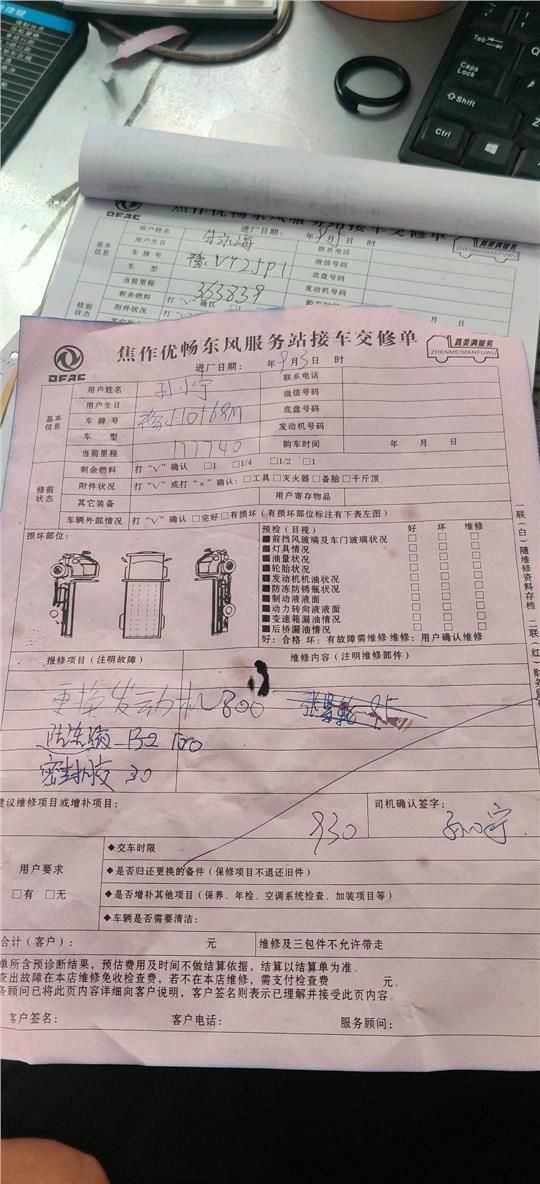 Tab
Caps Lock
Shift
Ctrl
Win
Alt
焦作优畅东风服务站接车交修单
真美满服务
DFAC
进厂日期: 年 月 日 时
用户姓名
联系电话
用户生日
微信号码
基本信息
车牌号
底盘号码
车型
发动机号码
当前里程 363839
剩余燃料 打“√”确认
修前状态
附件状况
焦作优畅东风服务站接车交修单
真美满服务
ZHENMEIMANFUWU
DFAC
进厂日期: 年9月3日 时
用户姓名 孙小宁 联系电话
用户生日 微信号码
基本信息
车牌号 底盘号码
车型 发动机号码
当前里程 177740 购车时间 年 月 日
修前状态
剩余燃料 打“√”确认 □1 □1/4 □1/2 □1
附件状况 打“√”或打“×”确认: □工具 □灭火器 □备胎 □千斤顶
其它装备 用户寄存物品
车辆外部情况 打“√”确认 □完好 □有损坏(有损坏部位标注有下表左图)
损坏部位:
预检(目视) 好 坏 维修
■前挡风玻璃及车门玻璃状况 □ □ □
■灯具情况 □ □ □
■油量状况 □ □ □
■轮胎状况 □ □ □
■发动机机油状况 □ □ □
■防冻防锈瓶状况 □ □ □
■制动液液面 □ □ □
■动力转向液液面 □ □ □
■变速箱漏油情况 □ □ □
■后桥漏油情况 □ □ □
好:合格 坏:有故障需维修 维修:用户确认维修
一联(白)随维修资料存档
二联(红)财务
报修项目(注明故障) 维修内容(注明维修部件)
更换发动机 800
防冻液 130 100
密封胶 30
建议维修项目或增补项目:
930
司机确认签字:
孙小宁
用户要求
□有 □无
◆交车时限
◆是否归还更换的备件(保修项目不退还旧件)
◆是否增补其他项目(保养、年检、空调系统检查、加装项目等)
◆车辆是否需要清洁:
合计(客户): 元 维修及三包件不允许带走
单所含预诊断结果,预估费用及时间不做结算依据,结算以结算单为准。
查出故障在本店维修免收检查费,若不在本店维修,需支付检查费 元。
务顾问已将此页内容详细向客户说明,客户签名则表示已理解并接受此页内容。
客户签名: 客户电话: 服务顾问: